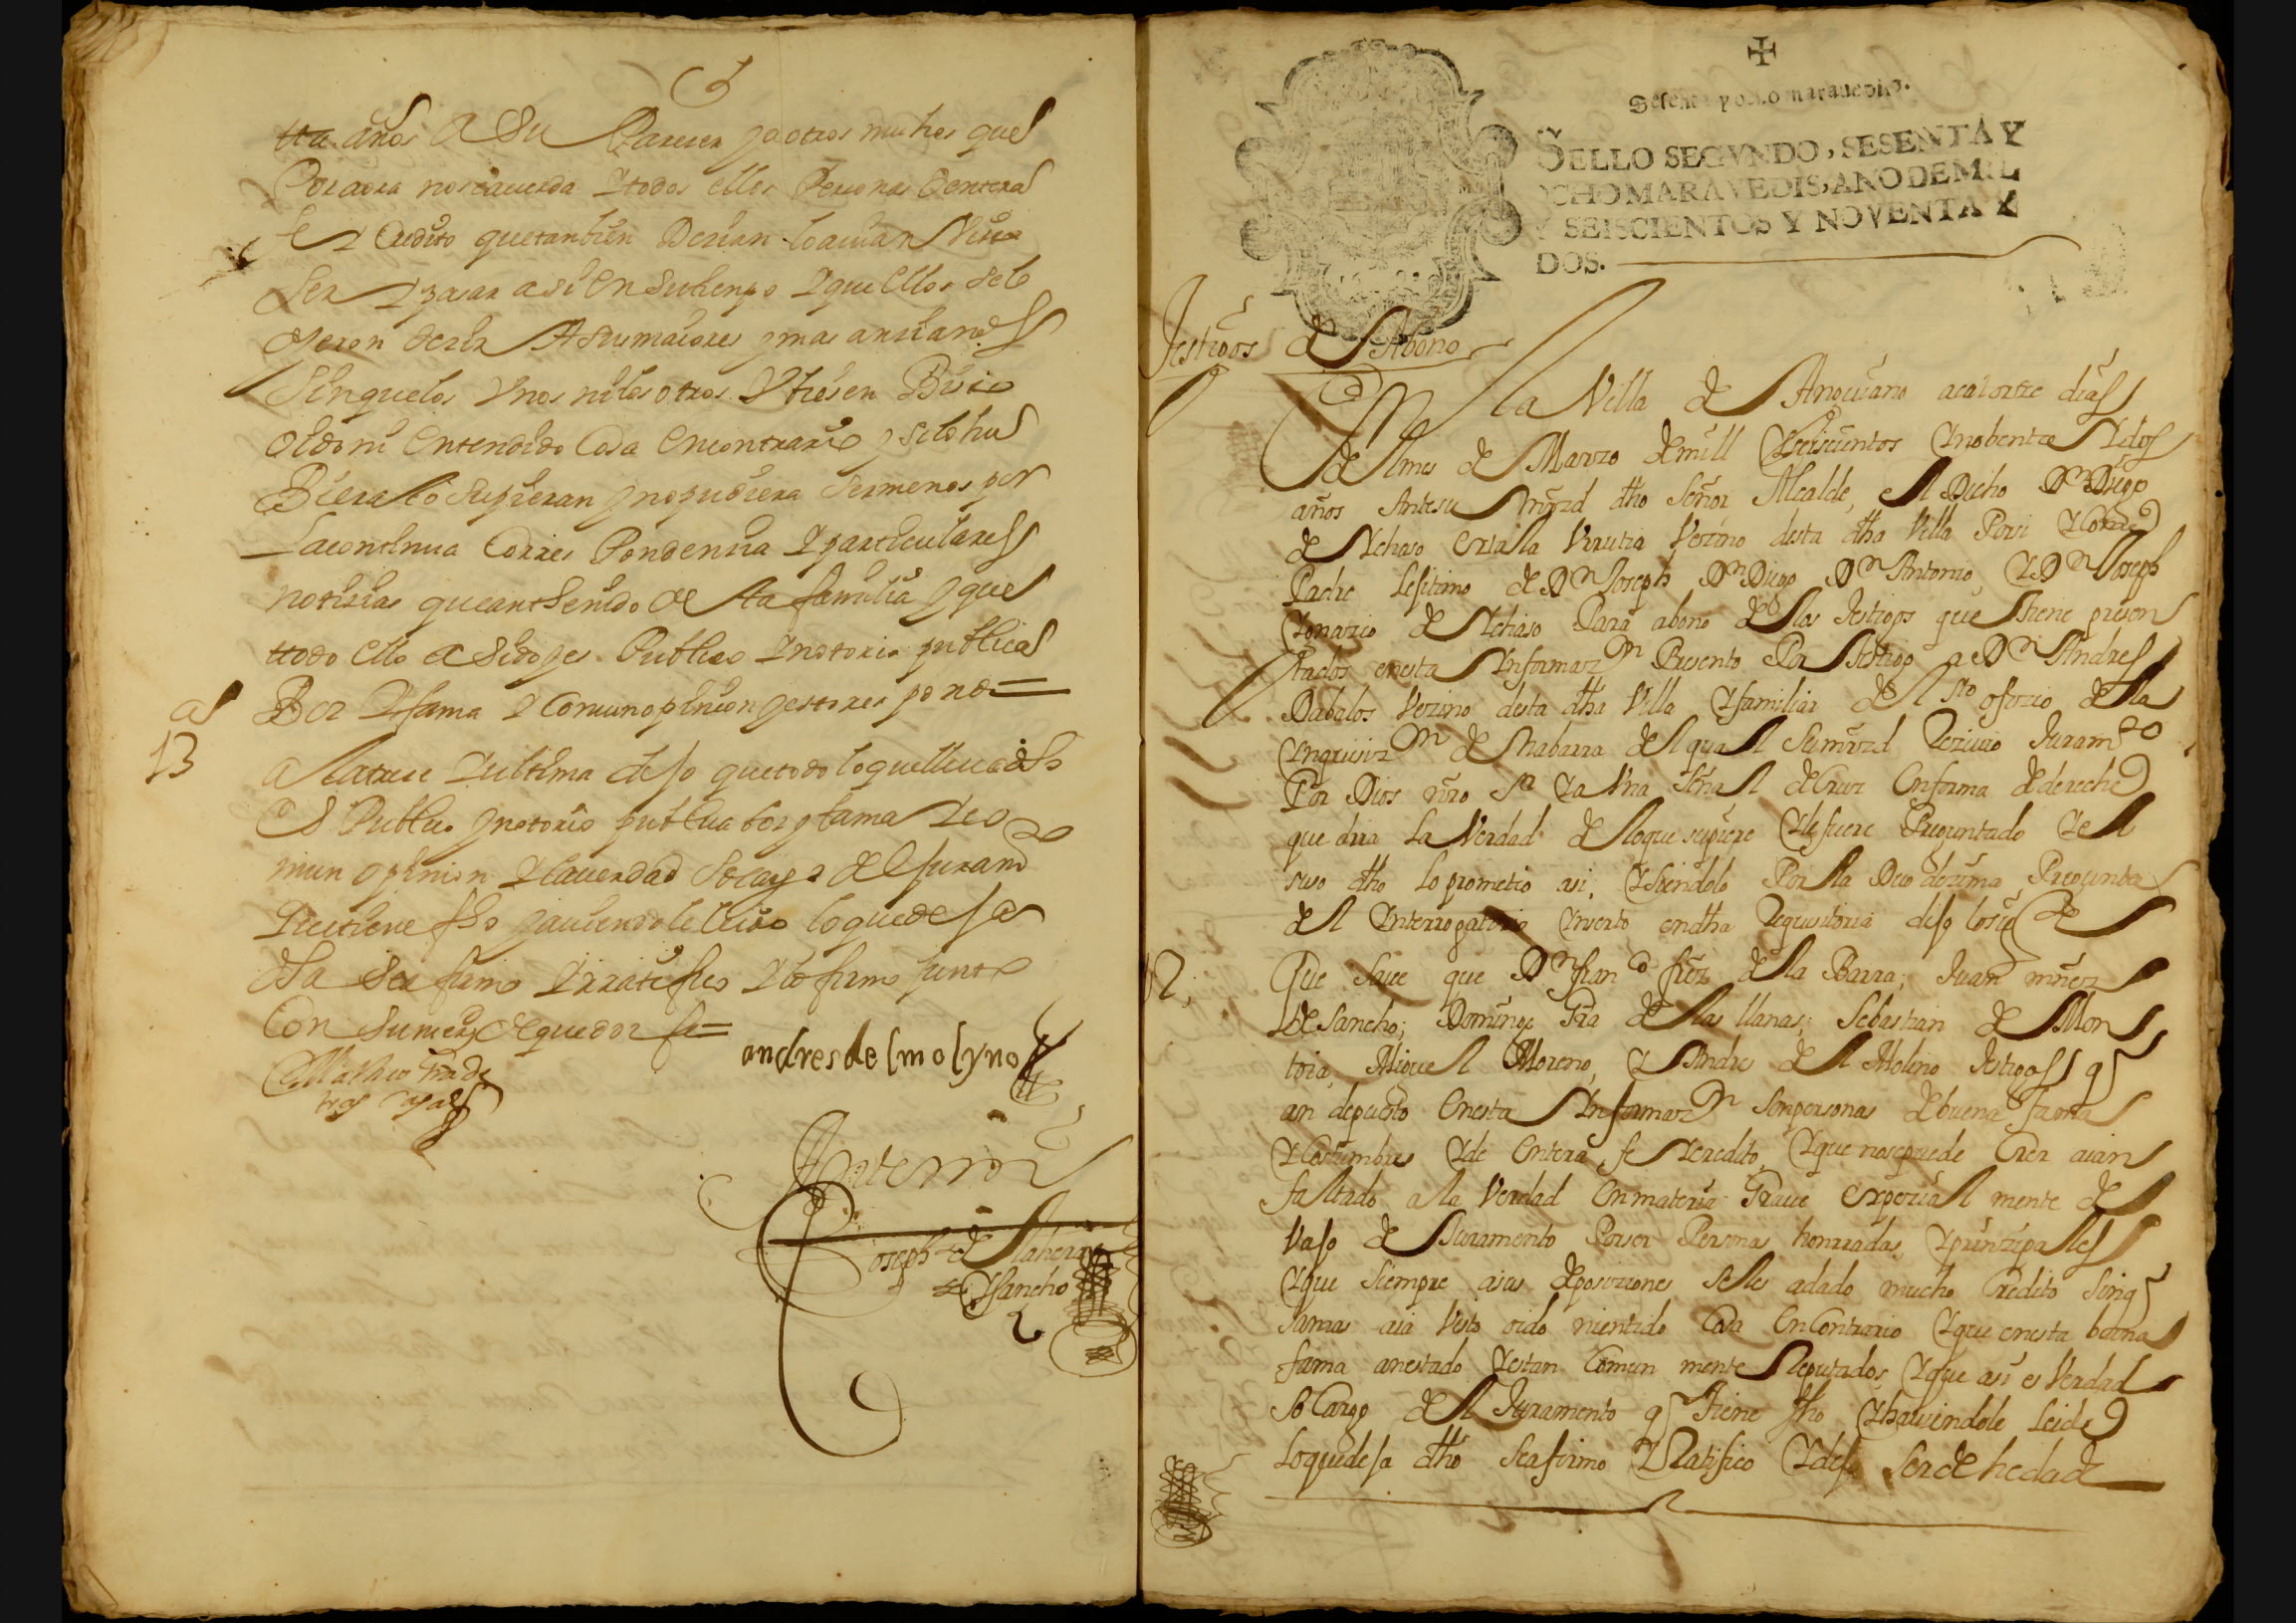 tta años a Su Parecer y a otros muchos que
Por aora no se acuerda Y todos ellos Personas de entera
fe Y Credito que tanbien Decian lo avian Visto
Ser Y pasar asi en Su tienpo Y que ellos Se lo
oyeron decir A Sus maiores y mas ancianos
Sin que los Unos ni los otros Vbiesen Visto
oido ni Entendido Cosa En contrario y si lo hu
Biera lo Supieran y no pudiera Ser menos por
La continua Corres Pondencia Y particulares
noticias que an tenido de esta familia y que
ttodo ello a Sido y es Publico Y notorio publica
Boz Y fama Y Comun opinion y esto responde =
a
13
a la trece Y ultima dijo que todo lo que lleva dho
es Publico Y notorio publica boz y fama Y co
mun opinion Y la verdad So cargo del juramto
Que tiene fho y aviendole leido lo que deja
dho Se afirmo Y rratifico Y lo firmo junto
Con Su merd de que doi fe =
andres de el molyno
Matheo
Ante mi
Joseph de la hera
Y Sancho
Sesenta y ocho maravedis.
SELLO SEGVNDO, SESENTA Y
OCHO MARAVEDIS, AÑO DE MIL
Y SEISCIENTOS Y NOVENTA Y
DOS.
Testigos de Abono
En la Villa de Anguiano a catorze dias
del mes de Marzo de mill Y seiscientos Y nobenta Y dos
años Ante su mrd dho Señor Alcalde, el Dicho Dn Diego
de Ychaso Vrrutia Vezino desta dha Villa Por si Y Como
Padre Lejitimo de Dn Joseph Dn Diego Dn Antonio Y Dn Joseph
Ygnacio de Ychaso Para abono de los testigos que tiene presen
tados en esta Ynformazn Presento Por testigo a Dn Andres
Dabalos Vezino desta dha Villa Y familiar del sto ofizio de la
Ynquisizn de Nabarra del qual Su mrd Rezivio Juramto
Por Dios nro Sr Y a Una Señal de Cruz En forma de derecho
que dira La Verdad de lo que supiere Y le fuere Preguntado Y el
suso dho lo prometio asi, Y siendolo Por la Duo dezima Pregunta
del Ynterrogatorio Ynserto en dha Requisitoria dijo lo sigte
12.
Que Save que Dn Franco frez de la Barra; Juan mñez
de Sancho; Domingo Gra de las llanas; Sebastian de Mon
toia, Miguel Moreno, Y Andres del Molino testigos q
an depuesto En esta Ynformazn Son personas de buena fama
Y Costumbres Y de Entera fe Y credito, Y que no se puede Crer aian
faltado a la Verdad En materia Grave Expezial mente de
Vajo de Juramento Por ser Personas honrradas, Y prinzipales
Y que Siempre a sus deposiciones se les a dado mucho Credito Sin q
Jamas aia Visto oido ni entdido Cosa En Contrario Y que en esta buena
fama an estado Y estan Comun mente Reputados, Y que asi es Verdad
So Cargo del Juramento q tiene fho Y haviendole leido
lo que deja dho Se afirmo Y Ratifico Y dijo Ser de hedad